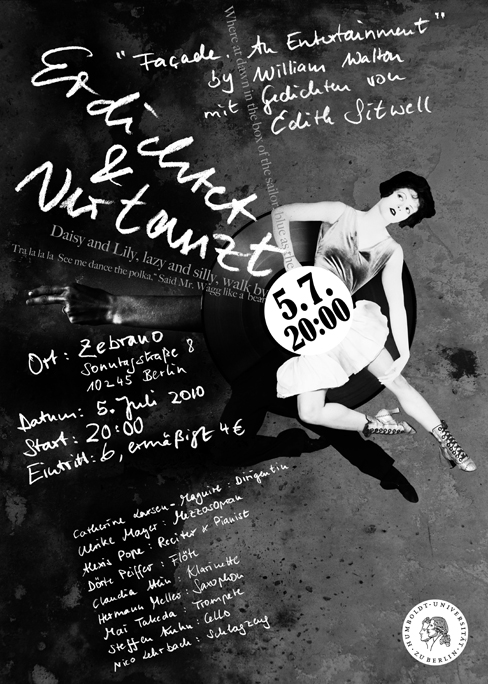 "Façade. An Entertainment"
by William Walton
mit Gedichten von
Edith Sitwell
Erdichtet
&
Vertanzt
Where at dawn in the box of the sailor blue as the
Daisy and Lily, lazy and silly, walk by
"Tra la la la See me dance the polka," Said Mr. Wagg like a bear
5.7.
20:00
Ort: Zebrano
Sonntagstraße 8
10245 Berlin
Datum: 5. Juli 2010
Start: 20:00
Eintritt: 6, ermäßigt 4€
Catherine Larsen-Maguire: Dirigentin
Ulrike Mayer: Mezzosopran
Alexis Pope: Reciter & Pianist
Dörte Peiffer: Flöte
Claudia Klarinette
Hermann Meller: Saxophon
Mai Takeda: Trompete
Steffen Kühn: Cello
Nico Lehrbach: Schlagzeug
HUMBOLDT-UNIVERSITÄT
ZU BERLIN